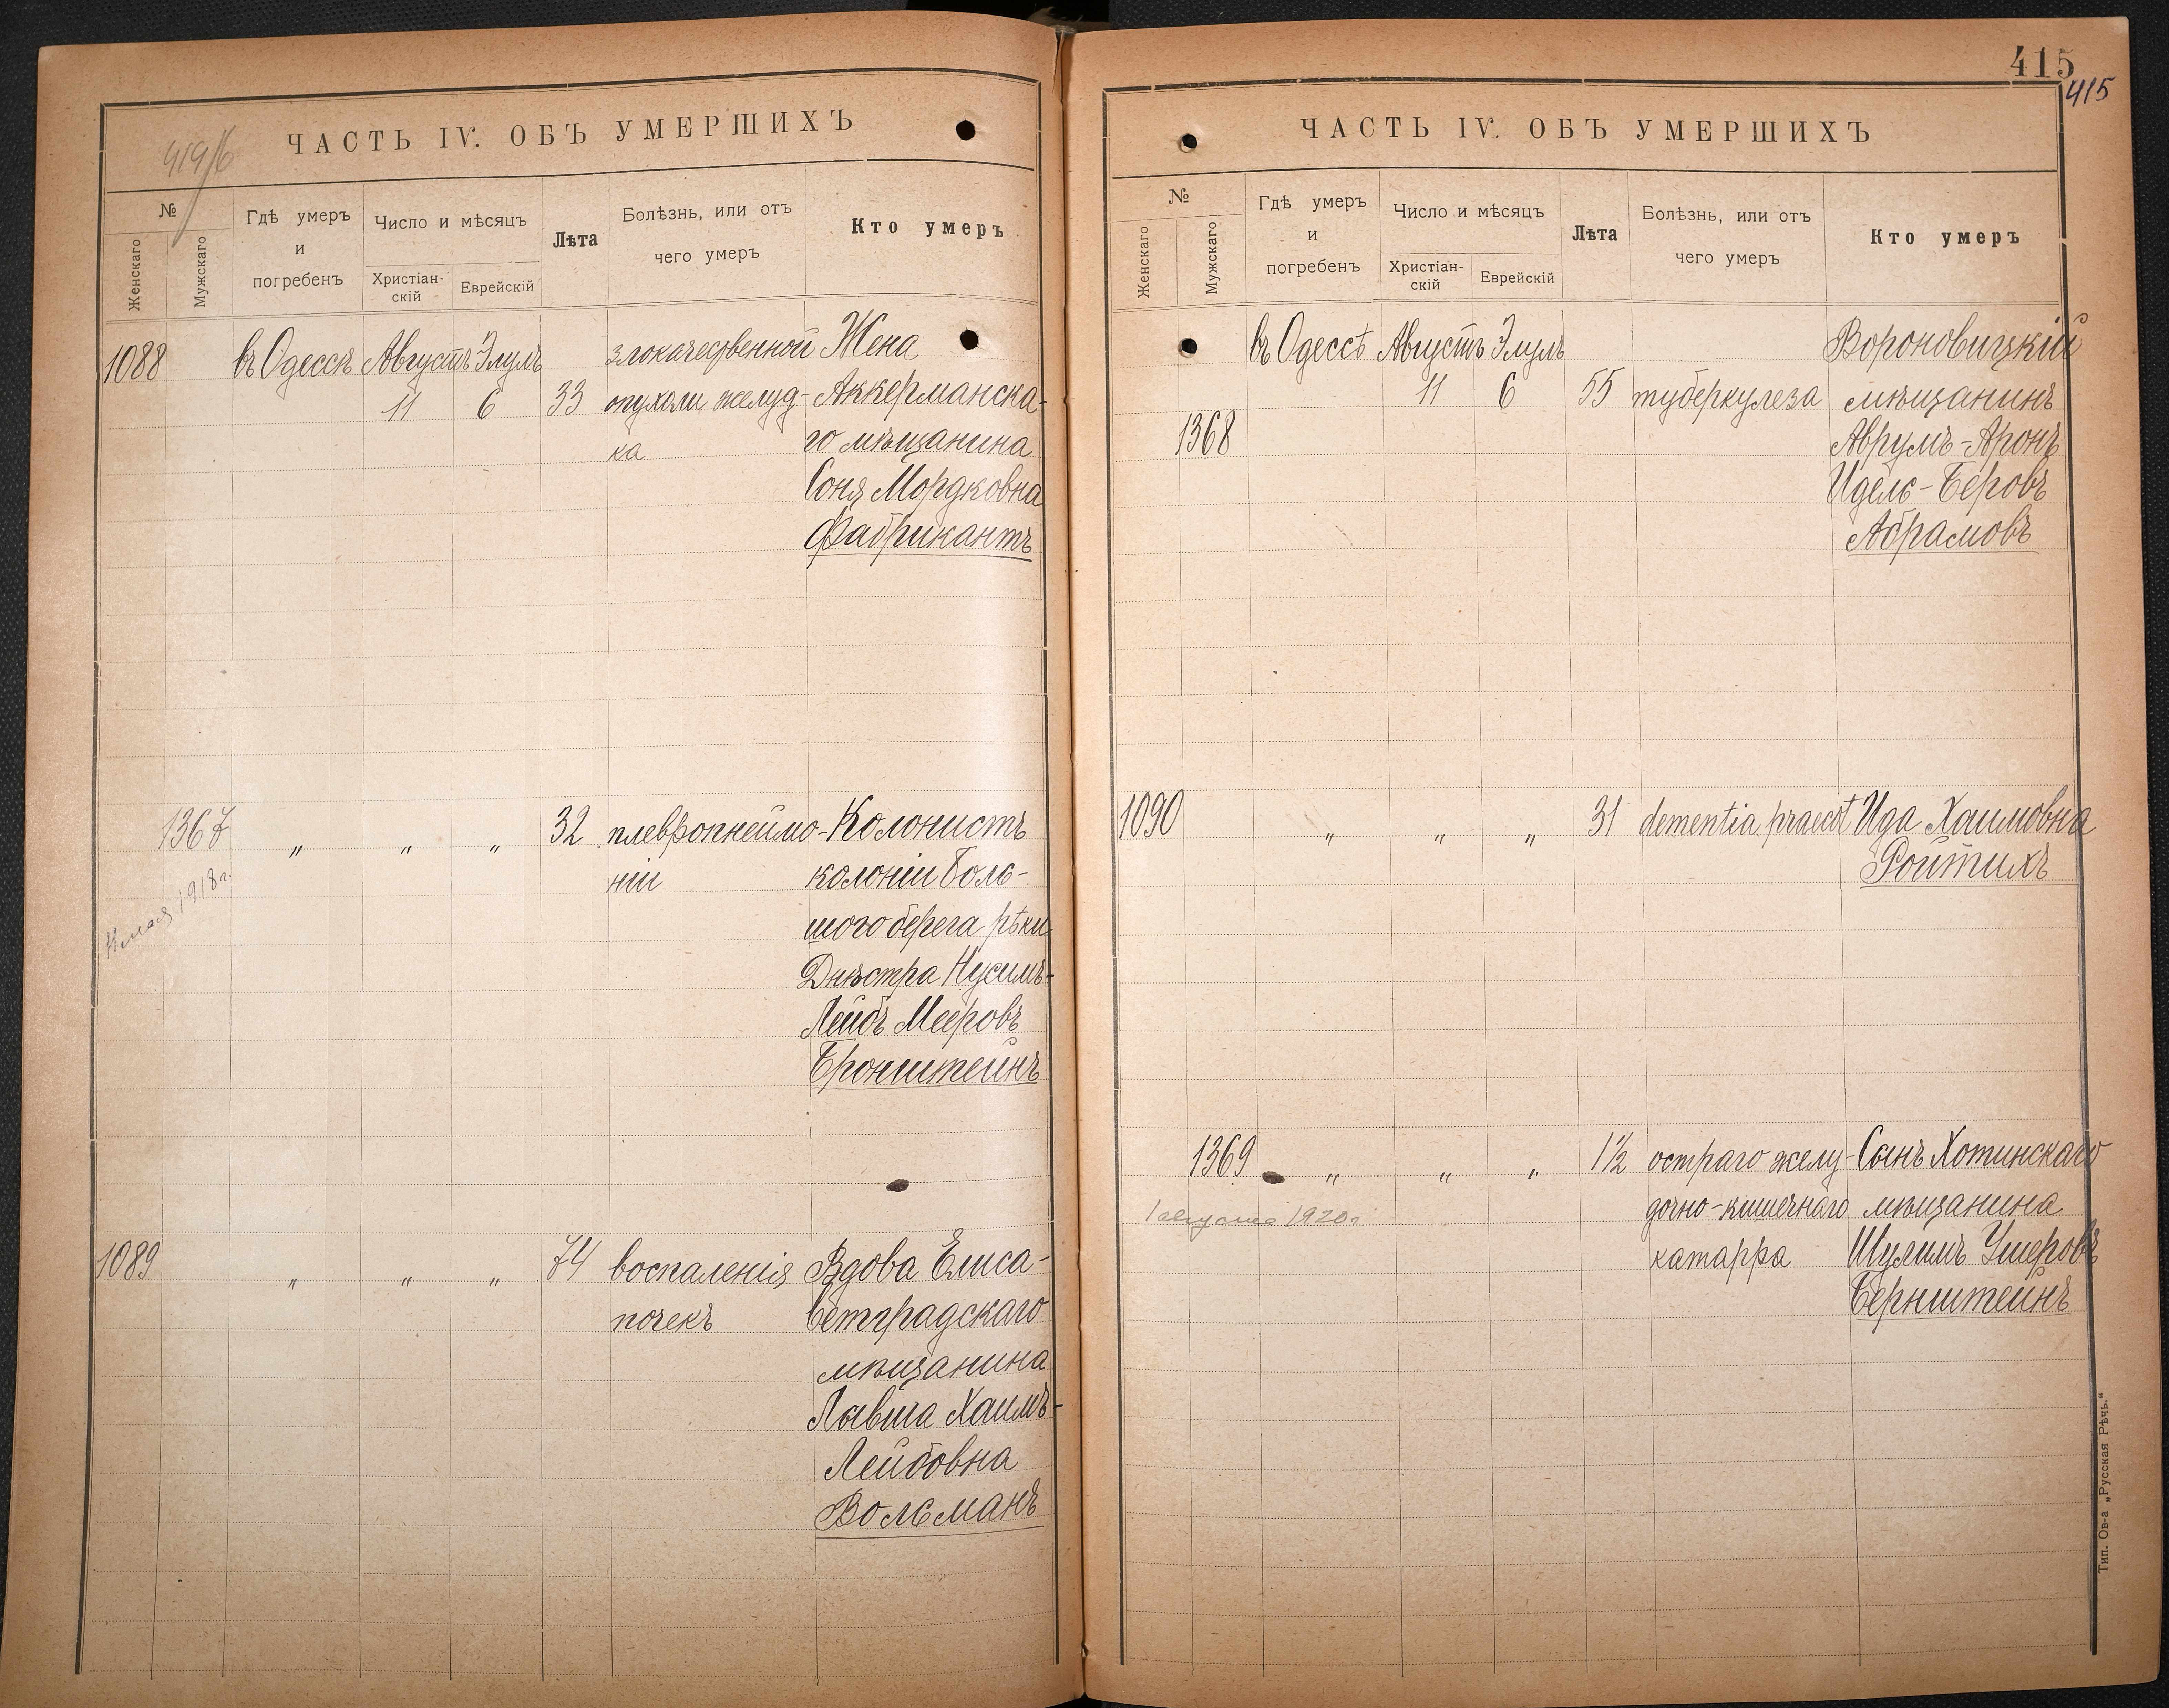 ЧАСТЬ IV. ОБЪ УМЕРШИХЪ
№
Женскаго
Мужскаго
Гдѣ умеръ
и
погребенъ
Число и мѣсяцъ
Христіан-
скій
Еврейскій
Лѣта
Болѣзнь, или отъ
чего умеръ
Кто умеръ
1088 въ Одессѣ Августъ Элулъ злокачественной Жена
11 6 33 опухоли желуд- Аккерманска-
ка го мѣщанина
Соня Мордковна
Фабрикантъ
1367 „ „ „ 32 плевропнеймо- Колонистъ
ніи колоніи Боль-
шого берега рѣки
Днѣстра Нусимъ-
Лейбъ Мееровъ
Бронштейнъ
мая 1918 г.
1089 „ „ „ 74 воспаленія Вдова Елиса-
почекъ ветградскаго
мѣщанина
Хаимъ-
Лейбовна
Вольманъ
415
415
ЧАСТЬ IV. ОБЪ УМЕРШИХЪ
№
Женскаго
Мужскаго
Гдѣ умеръ
и
погребенъ
Число и мѣсяцъ
Христіан-
скій
Еврейскій
Лѣта
Болѣзнь, или отъ
чего умеръ
Кто умеръ
въ Одессѣ Августъ Элулъ Вороновицкій
11 6 55 туберкулеза мѣщанинъ
1368 Аврумъ-Аронъ
Идель-Беровъ
Абрамовъ
1090 „ „ „ 31 dementia praecot Ида Хаимовна
Ройтихъ
1369 „ „ „ 1½ остраго желу- Сынъ Хотинскаго
1 августа 1920 г. дочно-кишечнаго мѣщанина
катарра Шулимъ Ушеровъ
Бернштейнъ
Тип. Ов-а „Русская Рѣчь.“